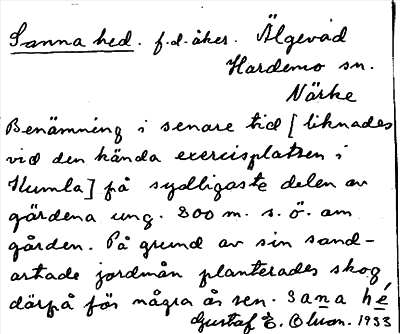 Sanna hed. f.d. åker. Älgevad
Hardemo sn.
Närke
Benämning i senare tid [liknades
vid den kända exercisplatsen i
Kumla] på sydligaste delen av
gärdena ung. 800 m. s.ö. om
gården. På grund av sin sand-
artade jordmån planterades skog
därpå för några år sen. sana hé
Gustaf E. Olsson. 1933